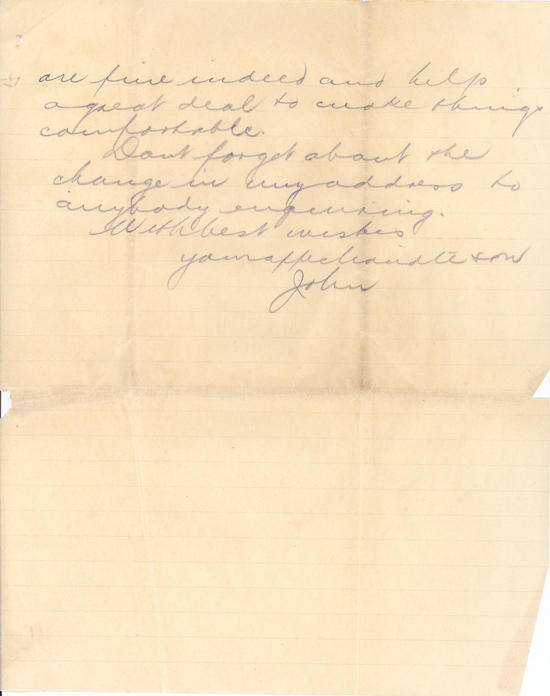 are fine indeed and help
a great deal to make things
comfortable.
Dont forget about the
change in my address to
anybody enquiring.
With best wishes
your affectionate son
John